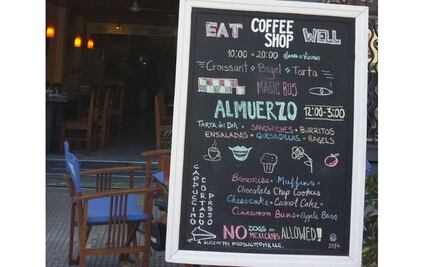 EAT COFFEE SHOP WELL
10:00 - 20:00 Lunes a Viernes
Croissant Bagel Tarta
MAGIC BUS
ALMUERZO 12:00-3:00
TARTA del DIA SANDWICHES BURRITOS
ENSALADAS QUESADILLAS BAGELS
CAPPUCINO
CORTADO
Brownies Muffins
Chocolate Chip Cookies
Cheesecake Carrot Cake
Cinnamon Buns Apple
NO DOGS or MEXICANS ALLOWED!
PRODUCTIONS, LLC.